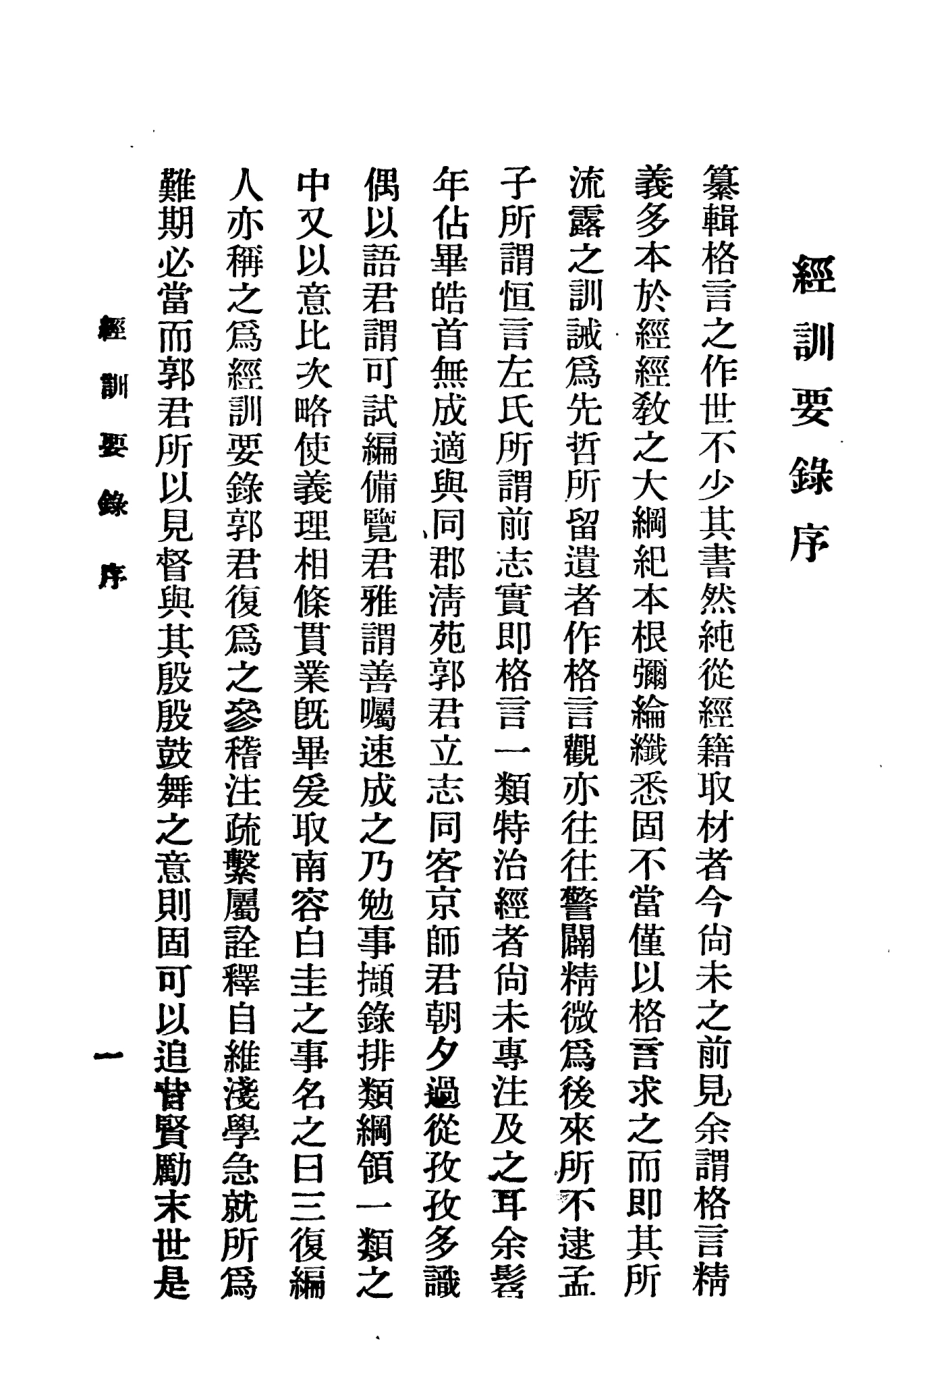 經訓要錄序
纂輯格言之作世不少其書然純從經籍取材者今尙未之前見余謂格言精
義多本於經經敎之大綱紀本根彌綸纖悉固不當僅以格言求之而即其所
流露之訓誡爲先哲所留遺者作格言觀亦往往警闢精微爲後來所不逮孟
子所謂恒言左氏所謂前志實即格言一類特治經者尙未專注及之耳余髫
年佔畢皓首無成適與同郡淸苑郭君立志同客京師君朝夕過從孜孜多識
偶以語君謂可試編備覽君雅謂善囑速成之乃勉事擷錄排類綱領一類之
中又以意比次略使義理相條貫業旣畢爰取南容白圭之事名之曰三復編
人亦稱之爲經訓要錄郭君復爲之參稽注疏繫屬詮釋自維淺學急就所爲
難期必當而郭君所以見督與其殷殷鼓舞之意則固可以追昔賢勵末世是
經訓要錄序
一